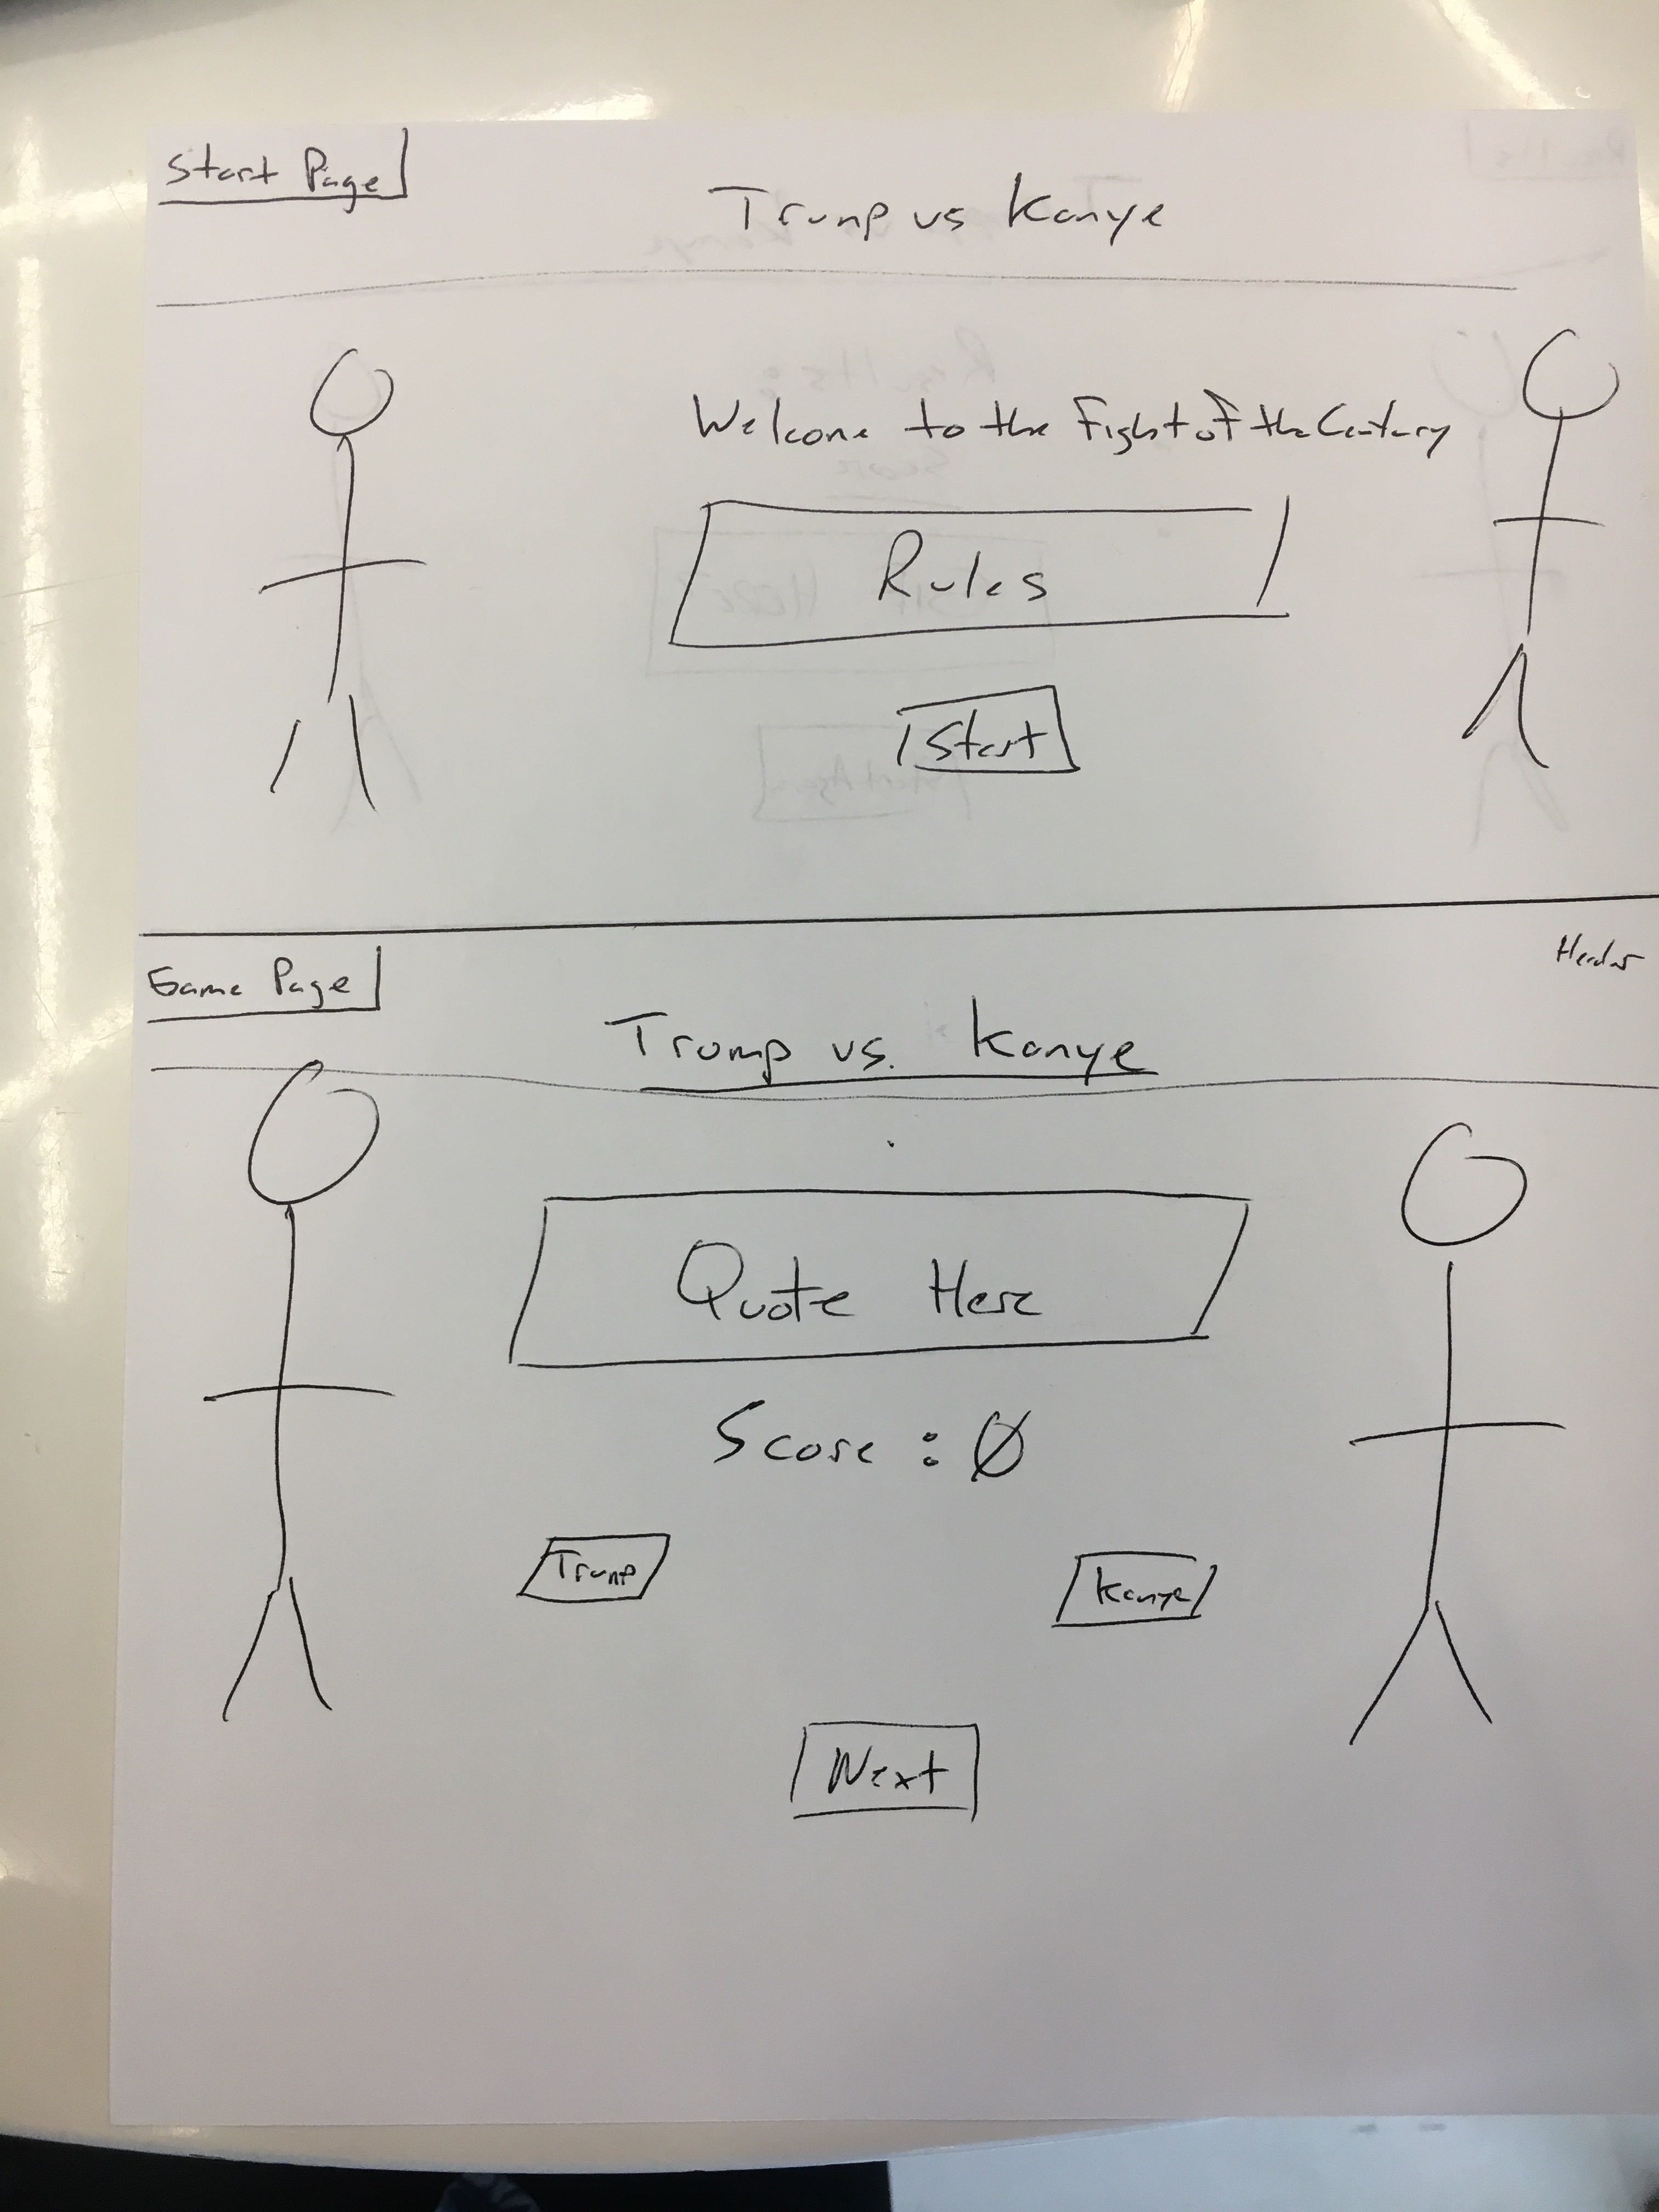 Start Page
Trump vs Kanye
Welcome to the Fight of the Century
Rules
Start
Header
Game Page
Trump vs. Kanye
Quote Here
Score : 0
Trump
Kanye
Next